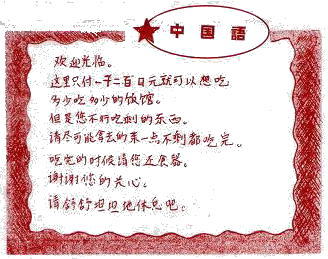 中国語
欢迎光临。
这里只付一千二百日元就可以想吃
多少吃多少的饭馆。
但是您不可吃剩的东西。
请尽可能拿去的东一点不剩都吃完。
吃完的时候请您还食器。
谢谢您的关心。
请舒舒坦坦地休息吧。